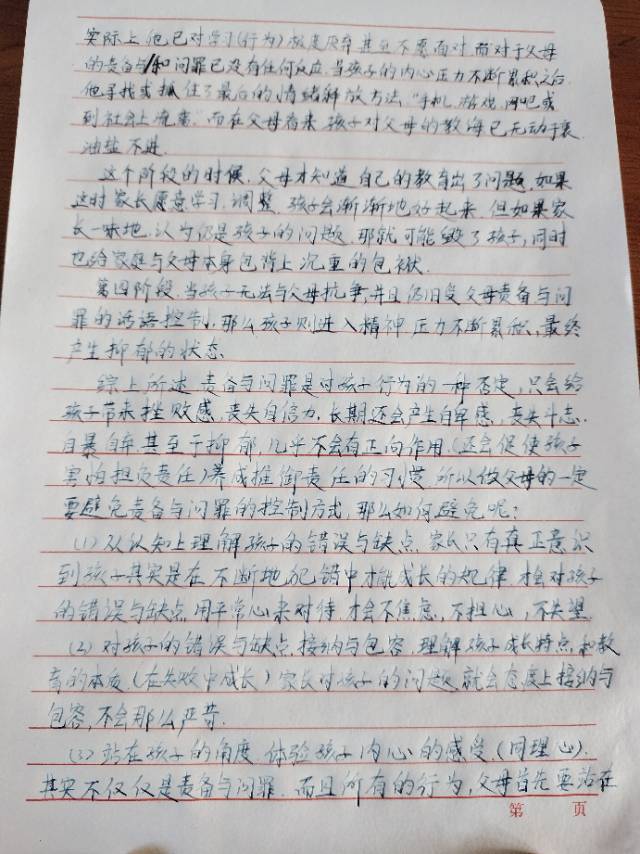 实际上他已对学习(行为)极度厌弃甚至不愿面对,而对于父母
的责备与和问罪已没有任何反应,当孩子的内心压力不断累积之后,
他寻找或抓住了最后的情绪释放方法,"手机、游戏、网吧或
到社会上流荡。"而在父母看来,孩子对父母的教诲已无动于衷,
油盐不进.
这个阶段的时候,父母才知道自己的教育出了问题,如果
这时家长愿意学习、调整,孩子会渐渐地好起来,但如果家
长一味地,认为仍是孩子的问题,那就可能毁了孩子,同时
也给家庭与父母本身包背上沉重的包袱.
第四阶段,当孩子无法与父母抗争,并且仍旧受父母责备与问
罪的话语控制,那么孩子则进入精神压力不断累积,最终
产生抑郁的状态.
综上所述,责备与问罪是对孩子行为的一种否定,只会给
孩子带来挫败感,丧失自信力,长期还会产生自卑感,丧失斗志.
自暴自弃甚至于抑郁,几乎不会有正向作用.(还会促使孩子
害怕担负责任)养成推御责任的习惯,所以做父母的一定
要避免责备与问罪的控制方式,那么如何避免呢?
(1)从认知上理解孩子的错误与缺点,家长只有真正意识
到孩子其实是在不断地犯错中才能成长的规律,才会对孩子
的错误与缺点,用平常心来对待,才会不焦急,不担心,不失望.
(2)对孩子的错误与缺点,接纳与包容,理解孩子成长特点,和教
育的本质(在失败中成长)家长对孩子的问题,就会态度上接纳与
包容,不会那么严苛.
(3)站在孩子的角度,体验孩子内心的感受.(同理心).
其实不仅仅是责备与问罪,而且所有的行为,父母首先要站在
第 页